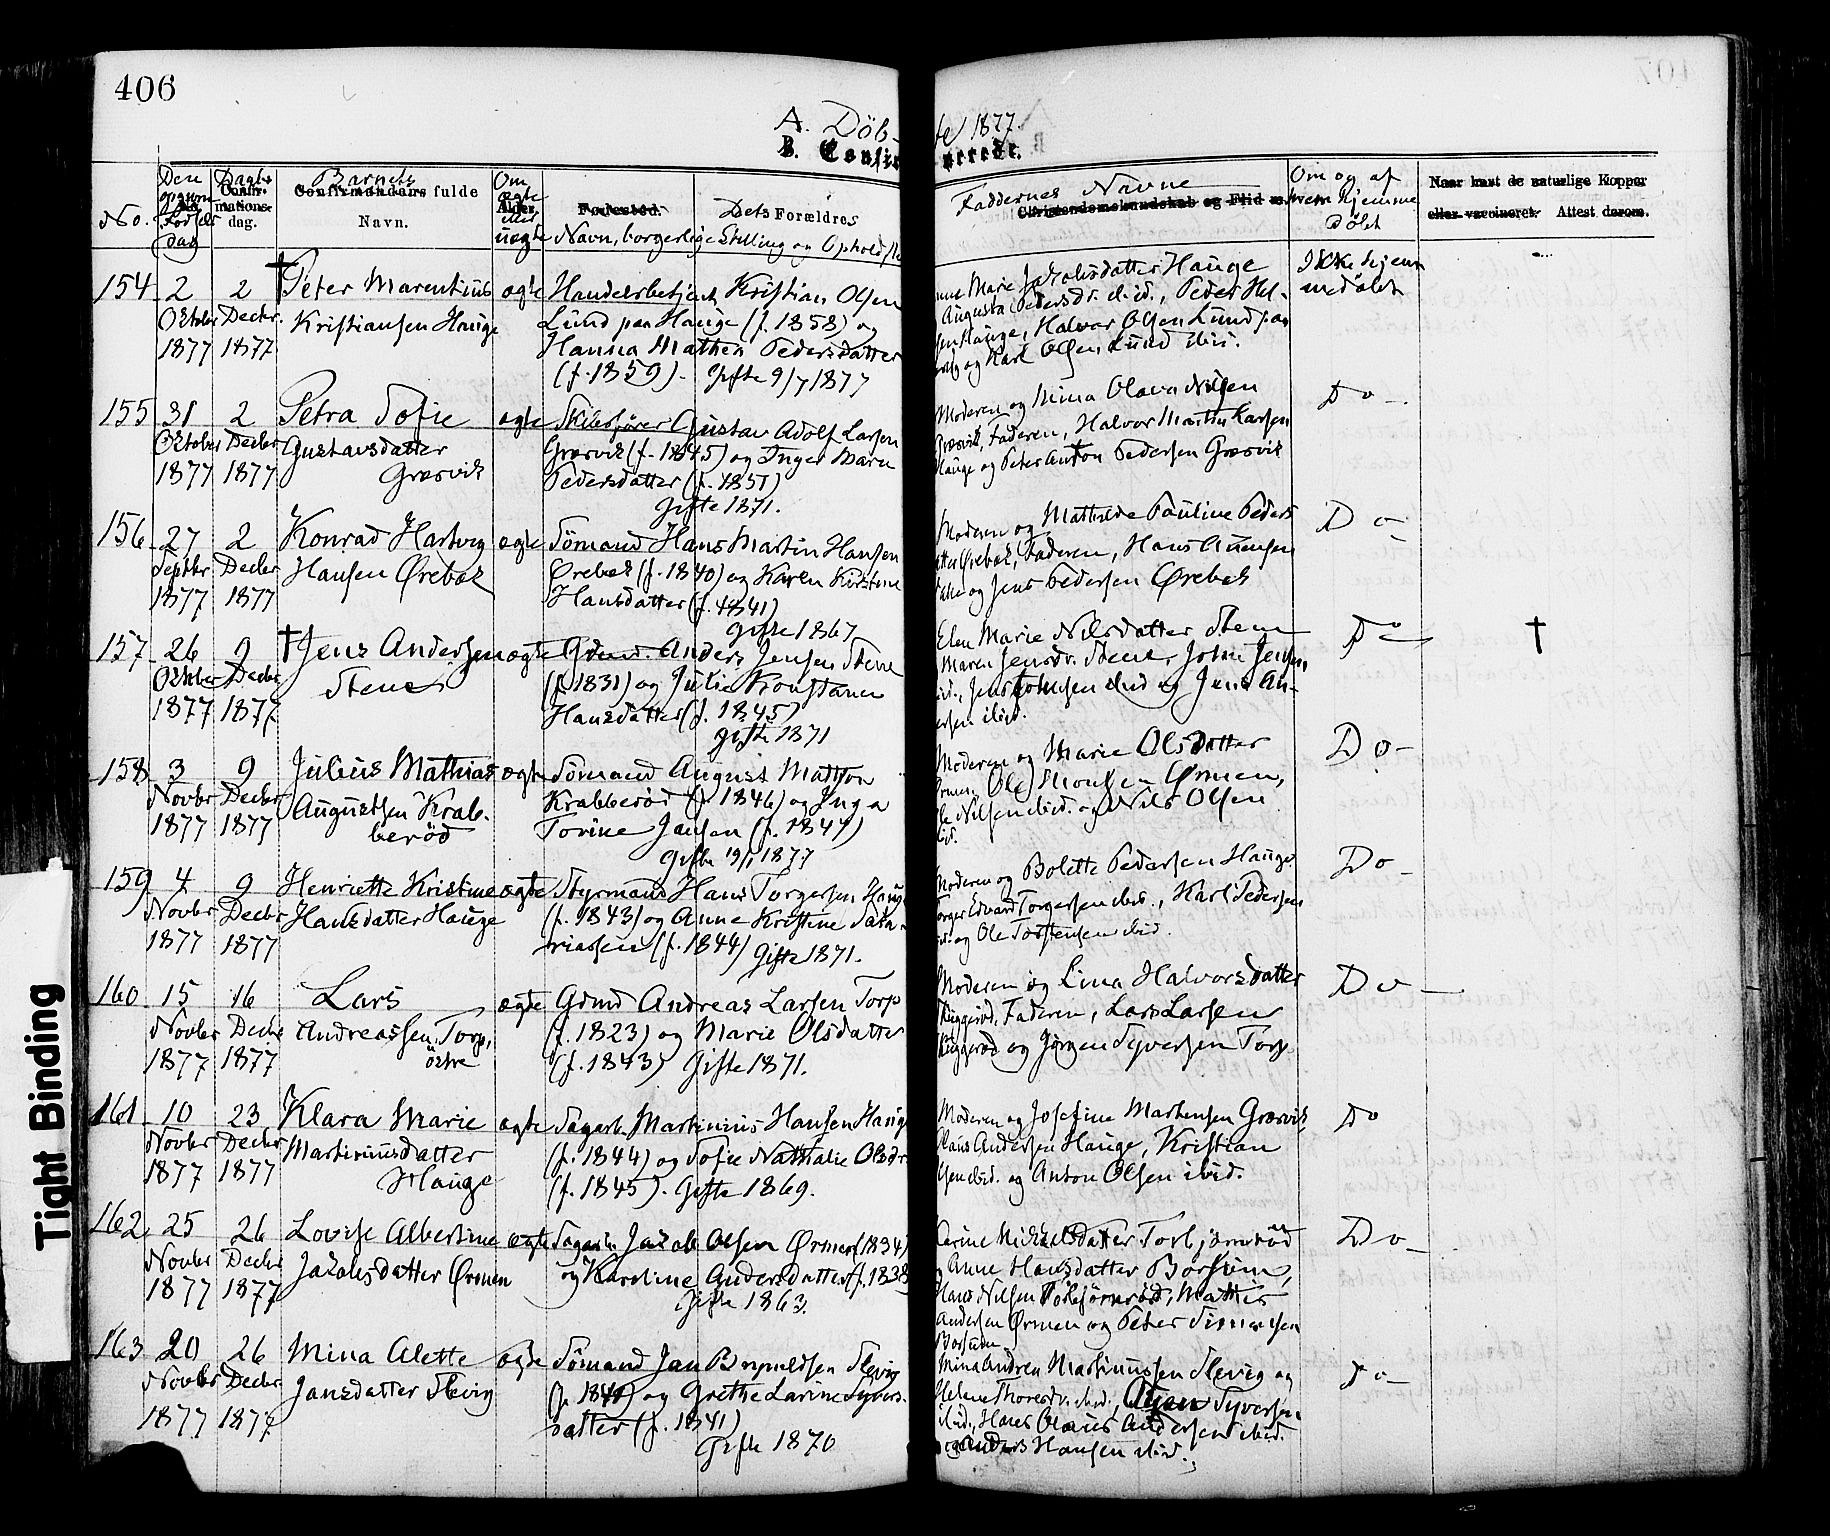 406
A. Döb-
te 1877.
B. Confir
merede.
No.
Den
Barnets
Confirmandens fulde
Navn.
Confir-
mations-
dag.
Om
ægte
eller
uægte
Alder.
Fødested.
Dets Forældres
Navn, borgerlige Stilling og Ophold
Faddernes Navne
Christendomskundskab og Flid
Om og af
hvem hjemme
döbt
Naar havt de naturlige Kopper
eller vaccineret. Attest derom.
154 2 2 † Peter Marentinus ægte Handelsbetjent Kristian Olsen
Oktober Decbr. Kristiansen Hauge Lund paa Hauge (f. 1858) og
1877 1877 Hanna Mathea Pedersdatter
(f. 1859). Gifte 9/7 1877
Marie Jakobsdatter Hauge
Augusta Pedersdr. ibid., Peder
Hauge, Halvor Olsen Lund
og Karl Olsen Lund ibid.
Ikke hjem-
medöbt
155 31 2 Petra Sofie ægte Skibsfører Gustav Adolf Larsen
Oktober Decbr Gustavsdatter Græsvik (f. 1845) og Inger Marie
1877 1877 Græsvik Pedersdatter (f. 1851)
Gifte 1871.
Moderen og Mina Olava Nilsen
Græsvik, Faderen, Halvor Martin Larsen
Hauge og Peter Anton Pedersen Græsvik
Do -
156 27 2 Konrad Hartvig ægte Sömand Hans Martin Hansen
Septbr Decbr Hansen Ørebæk Ørebæk (f. 1840) og Karen Kirstine
1877 1877 Hansdatter (f. 1841)
Gifte 1867
Moderen og Mathilde Pauline Peders
datter Ørebæk, Faderen, Hans
og Jens Pedersen Ørebæk
Do -
157 26 9 † Jens Andersen ægte Grdmd. Anders Jensen Stene
Oktober Decbr Stene (f. 1831) og Julie Konstance
1877 1877 Hansdatter (f. 1845)
gifte 1871
Elen Marie Nilsdatter Stene
Maren Jensdr. Stene, John Jensen
ibid., Jens Johnsen ibid og Jens An-
dersen ibid.
Do - †
158 3 9 Julius Mathias ægte Sömand August Matson
Novbr Decbr Augustsen Krab- Krabberöd (f. 1846) og Inga
1877 1877 beröd Torine Jansen (f. 1847)
Gifte 19/1 1877
Moderen og Marie Olsdatter
Ørmen, Ole Ørmen,
Nilsen ibid. og Nils Olsen
ibid.
Do -
159 4 9 Henriette Kristine ægte Styrmand Hans Torgersen Haug
Novbr Decbr Hansdatter Hauge (f. 1843) og Anne Kristine Saka-
1877 1877 riassen (f. 1844) Gifte 1871.
Moderen og Bolette Pedersen Hauge
Torger Edvard Torgersen ibid., Karl Pedersen
ibid. og Ole Torstensen ibid.
Do -
160 15 16 Lars ægte Grmd Andreas Larsen Torp
Novbr Decbr Andreassen Torp, (f. 1823) og Marie Olsdatter
1877 1877 östre (f. 1843) Gifte 1871.
Moderen og Lina Halvorsdatter
Faderen, Lars Larsen
og Jörgen Syversen Torp
Do -
161 10 23 Klara Marie ægte Sagarb. Martinius Hansen Haug
Novbr Decbr Martiniusdatter (f. 1844) og Sofie Nathalie Olsdr.
1877 1877 Hauge (f. 1845). Gifte 1869.
Moderen og Josefine Martensen Græsvik
Claus Andersen Hauge, Kristian
Olsen ibid. og Anton Olsen ibid.
Do
162 25 26 Lovise Albertine ægte Sagarb. Jakob Olsen Ørmen (f. 1834)
Novbr Decbr Jakobsdatter Ørmen og Karoline Andersdatter (f. 1838
1877 1877 Gifte 1863.
Karine Mikkelsdatter Torbjørnröd
Anne Hansdatter Borsum,
Hans Nilsen Torbjørnröd, Mathis
Andersen Ørmen og Peter Simensen
Borsum
Do -
163 20 26 Mina Alette ægte Sömand Jan Brynildsen Slevig
Novbr Decbr Jansdatter Slevig og Grethe Larine Syvers-
1877 1877 datter (f. 1841)
Gifte 1870
Mina Andrea Martinussen Slevig og
Helene Thoresdr. ibid., Syversen
ibid., Hans Olaus Andersen ibid.
og Anders Hansen ibid.
Do -
Tight Binding